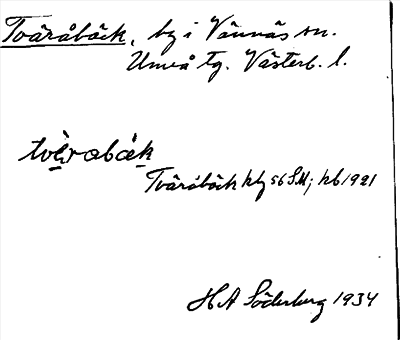 Tvåråbäck, by i Vännäs sn.
Umeå tg. Västerb. l.
Tväråbäck 56 SM; kb 1921
H A Söderberg 1934